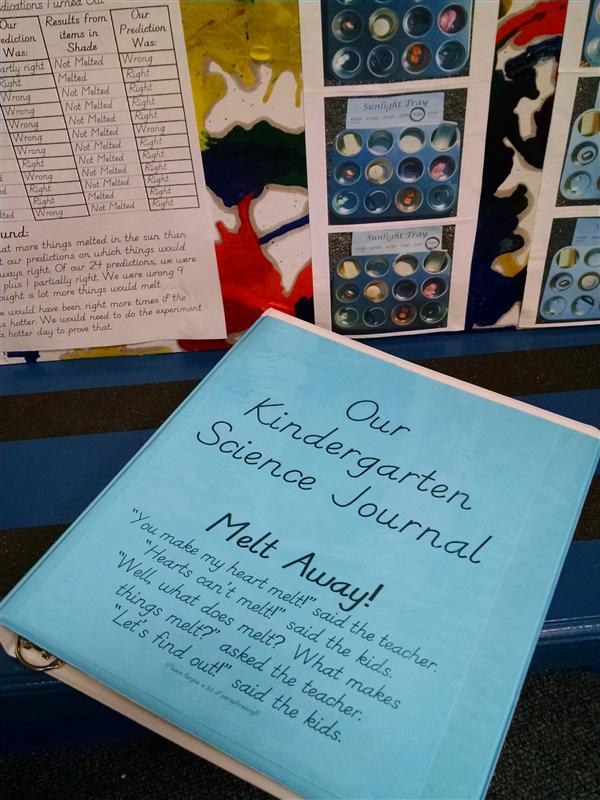 Turned Out
Our
Was:
Results from
items in
Shade
Our
Prediction
Was:
right Not Melted Wrong
Right Melted Right
Wrong Not Melted Right
Wrong Not Melted Right
Right Not Melted Right
Wrong Not Melted Right
Wrong Not Melted Wrong
Right Not Melted Right
Right Not Melted Right
Right Not Melted Right
Right Melted Right
Wrong Not Melted Right
more things melted in the sun than
our predictions on which things would
right. Of our 24 predictions, we were
plus 1 partially right. We were wrong 9
a lot more things would melt
would have been right more times if the
hotter. We would need to do the experiment
a hotter day to prove that.
Sunlight Tray
Sunlight Tray
Our
Kindergarten
Science Journal
Melt Away!
"You make my heart melt!" said the teacher.
"Hearts can't melt!" said the kids.
"Well, what does melt? What makes
things melt?" asked the teacher.
"Let's find out!" said the kids.
(Please forgive a bit of paraphrasing!)